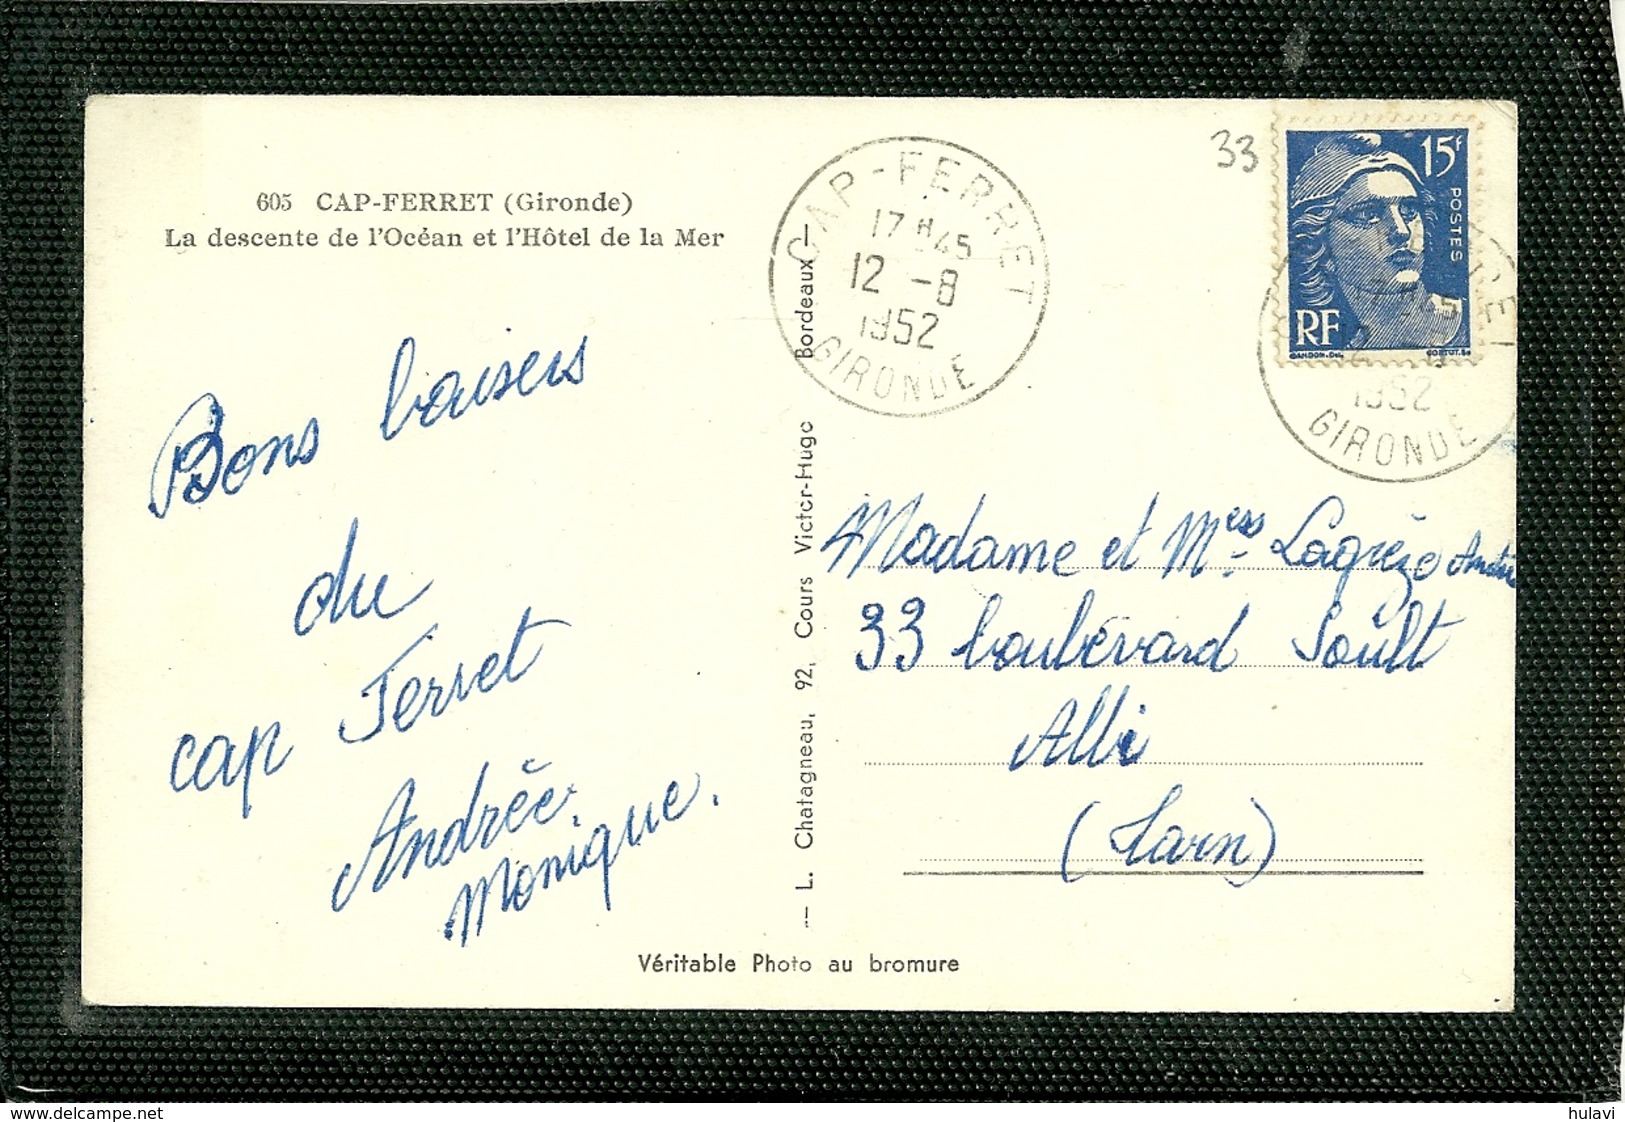 605 CAP-FERRET (Gironde)
La descente de l'Océan et l'Hôtel de la Mer
Bons baisers
du
cap Ferret
Andrée.
Monique.
— L. Chatagneau, 92, Cours Victor-Hugo Bordeaux —
Véritable Photo au bromure
CAP-FERRET
17 H 45
12 -8
1952
GIRONDE
33
15f
POSTES
RF
GANDON.Del.
1952
GIRONDE
Madame et Mess. Lagrèze
33 boulevard Soult
Albi
(Tarn)
www.delcampe.net
hulavi